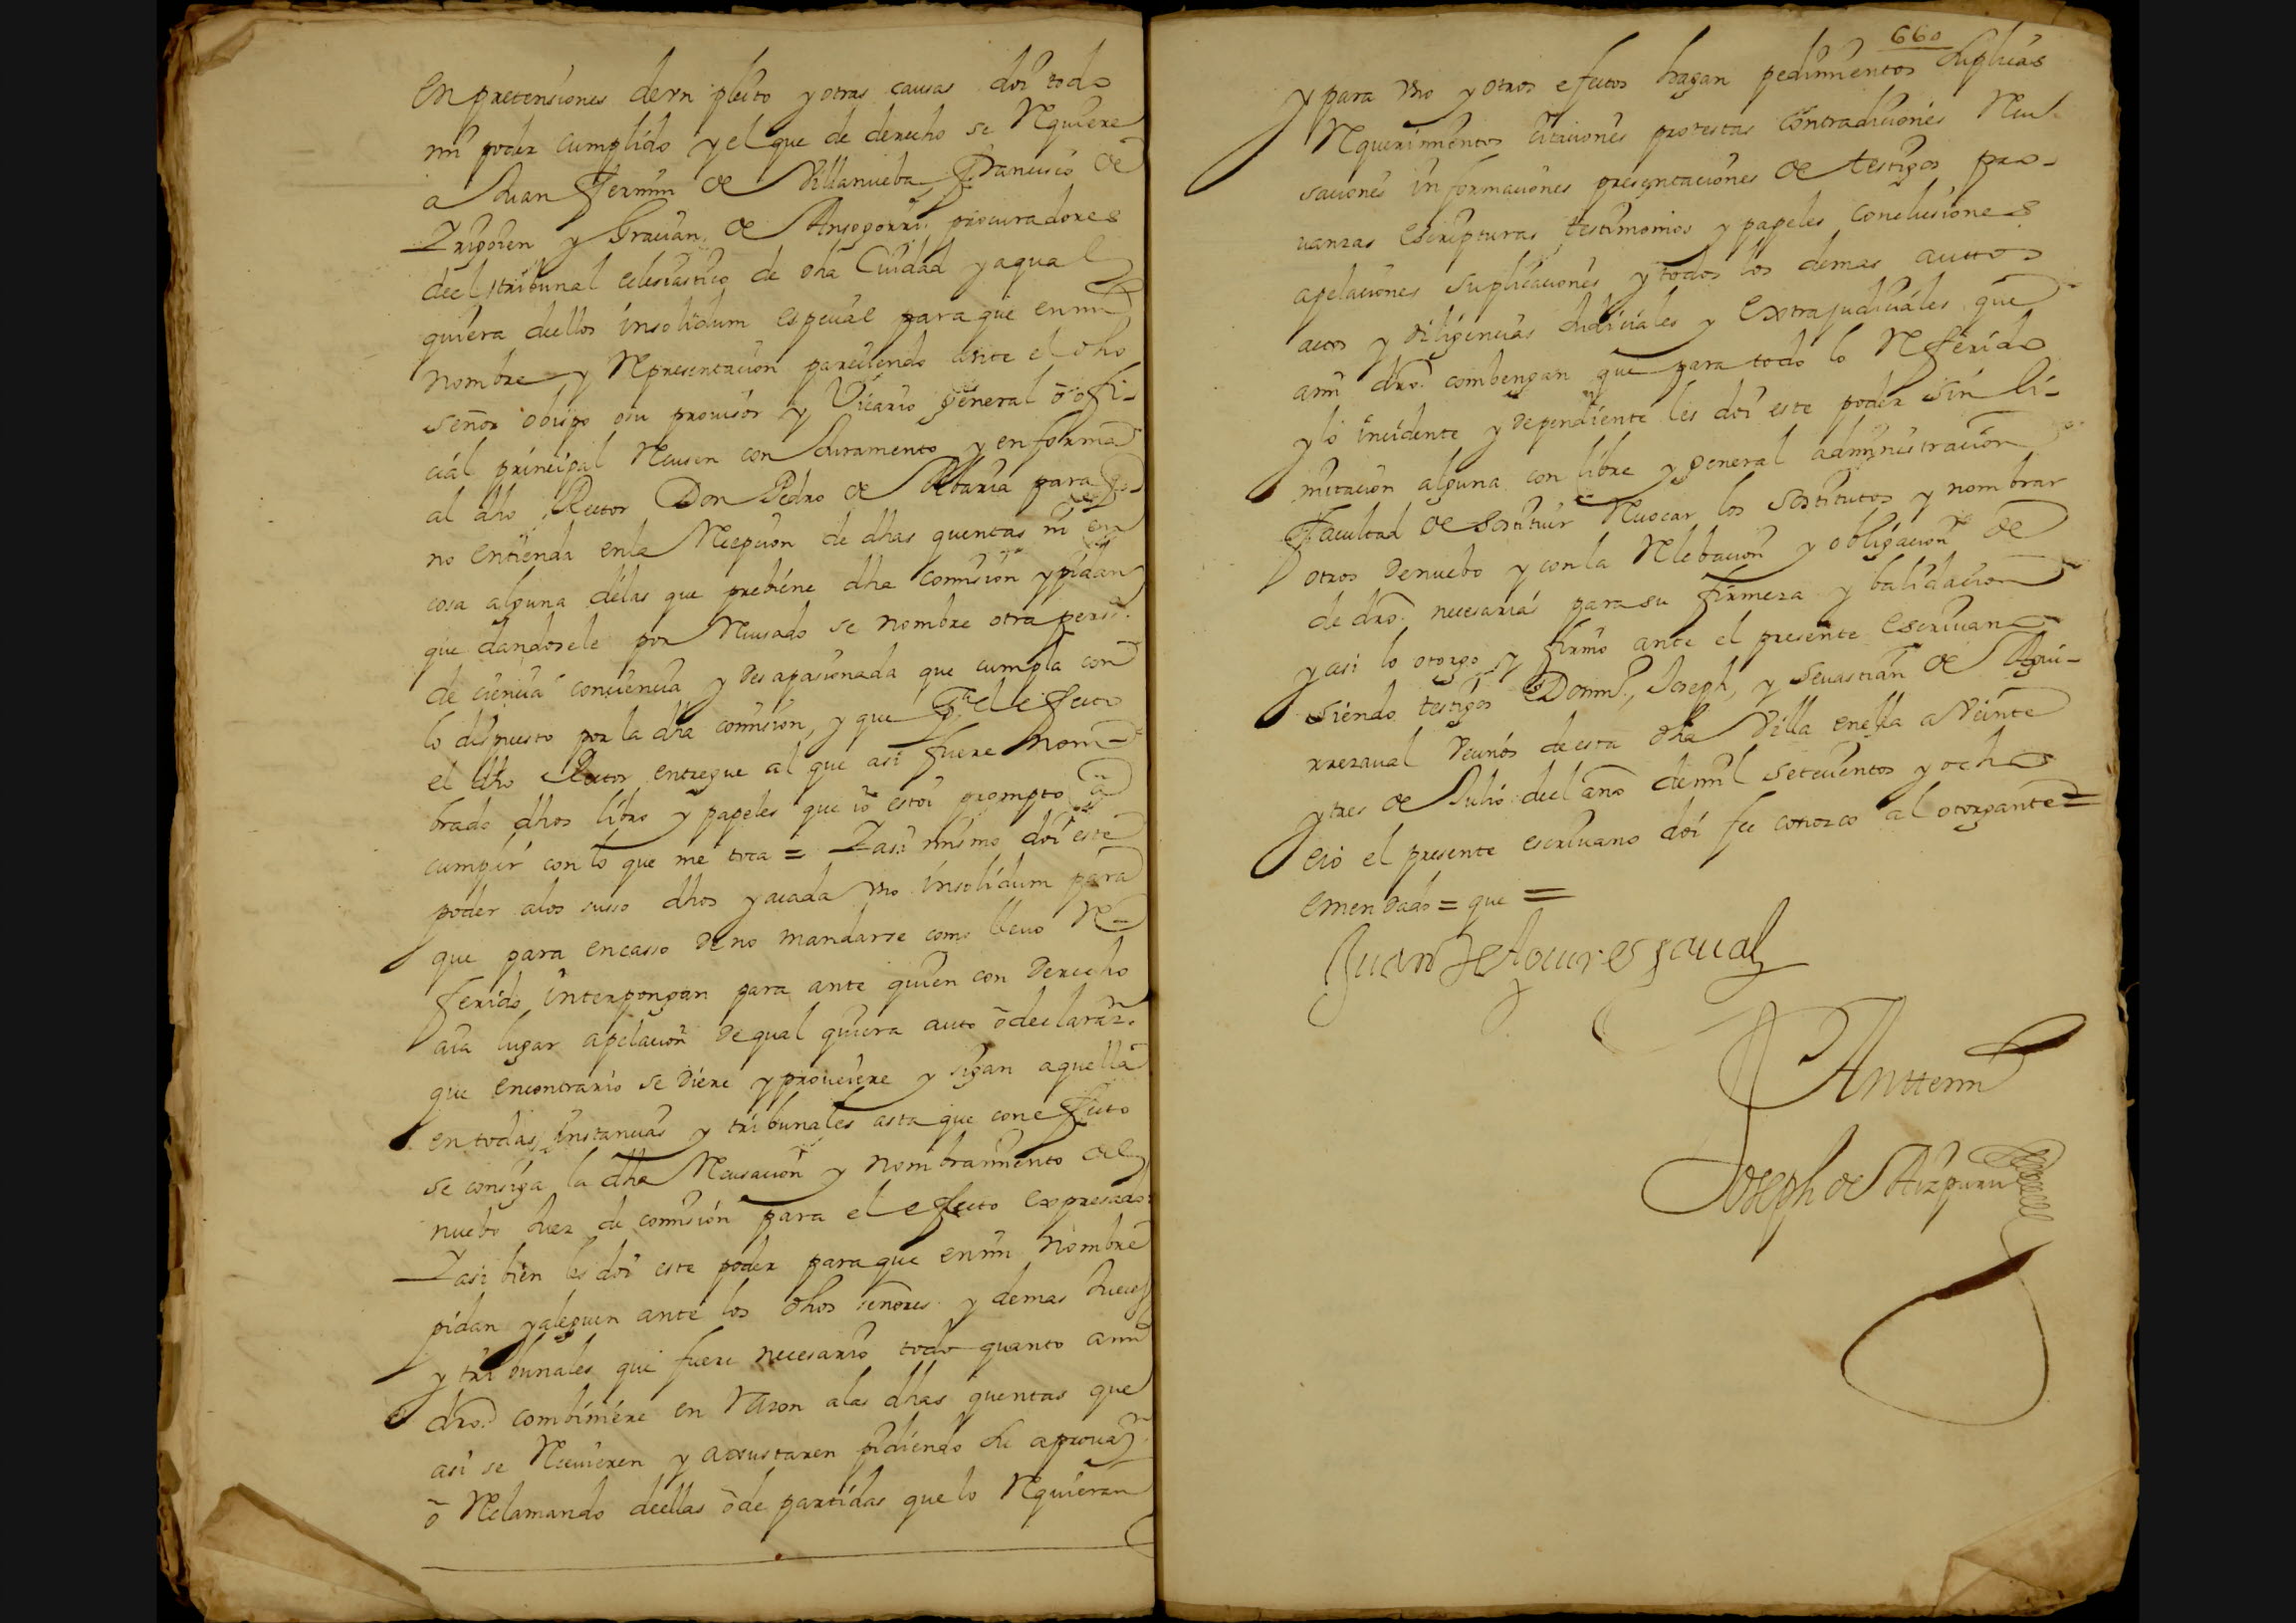 En pretensiones de vn pleito y otras causas doi todo
mi poder cumplido y el que de derecho se Requiere
a Juan Fermin de Villanueba Francisco de
Irigoien y Gracian de Ansogorri procuradores
del tribunal eclesiastico de dha Ciudad y a qual
quiera dellos insolidum especial para que en mi
nombre y Representacion pareciendo ante el dho
señor obispo o su provisor y Vicario general o ofi-
cial principal Recusen con Juramento y en forma
al dho Rector Don Pedro de para q̃
no entienda en la Recepcion de dhas quentas ni en
cosa alguna delas que prebiene dha comision y pidan
que dandosele por Recusado se nombre otra persa.
de ciencia conciencia y desapasionada que cumpla con
lo dispuesto por la dha comision, y que pa. el efecto
el dho Rector entregue al que asi fuere nom-
brado dhos libro y papeles que io estoi prompto a
cumplir con lo que me toca = I asi mismo doi este
poder alos suso dhos y a cada vno insolidum para
que para en casso de no mandarse como lleuo Re-
ferido interpongan para ante quien con derecho
aia lugar apelacion de qual quiera auto o declaraz.n
que en contrario se diere y proueiere y sigan aquella
en todas instancias y tribunales asta que con efecto
se consiga la dha Recusacion y nombramiento de
nuebo Juez de comision para el efecto expresado:
I asi bien les doi este poder para que en mi nombre
pidan y aleguen ante los dhos señores y demas Jueces
y tribunales que fuere necesario todo quanto a mi
dro. combiniere en razon alas dhas quentas que
asi se Reciuieren y axustaren pidiendo su aprouaz.n
o Reclamando dellas o de partidas que lo Requieran
660
y para vno y otros efectos hagan pedimientos suplicas
Requerimientos citaciones protestas contradiciones Recu-
saciones informaciones presentaciones de testigos pro-
uanzas escripturas testimonios y papeles conclusiones
apelaciones suplicaciones y todos los demas auttos
actos y diligencias Judiciales y extrajudiciales que
a mi dro. combengan que para todo lo Referido
y lo incidente y dependiente les doi este poder sin li-
mitacion alguna con libre y general administracion
Facultad de sostituir Reuocar los sostitutos y nombrar
otros de nuebo y con la Relebacion y obligacion de
de dro. necesarias para su firmeza y balidacion
y asi lo otorgo y firmo ante el presente escriuano
siendo testigos Domin.o, Joseph, y Seuastian de Agui-
rrezaual Vecinos de esta dha Villa en ella a Veinte
y tres de Julio del año de mil setecientos y ocho
e io el presente escriuano doi fee conozco al otorgante =
emendado = que =
Juan de Aguirresaual
Antte mi
Joseph de Aizpuru